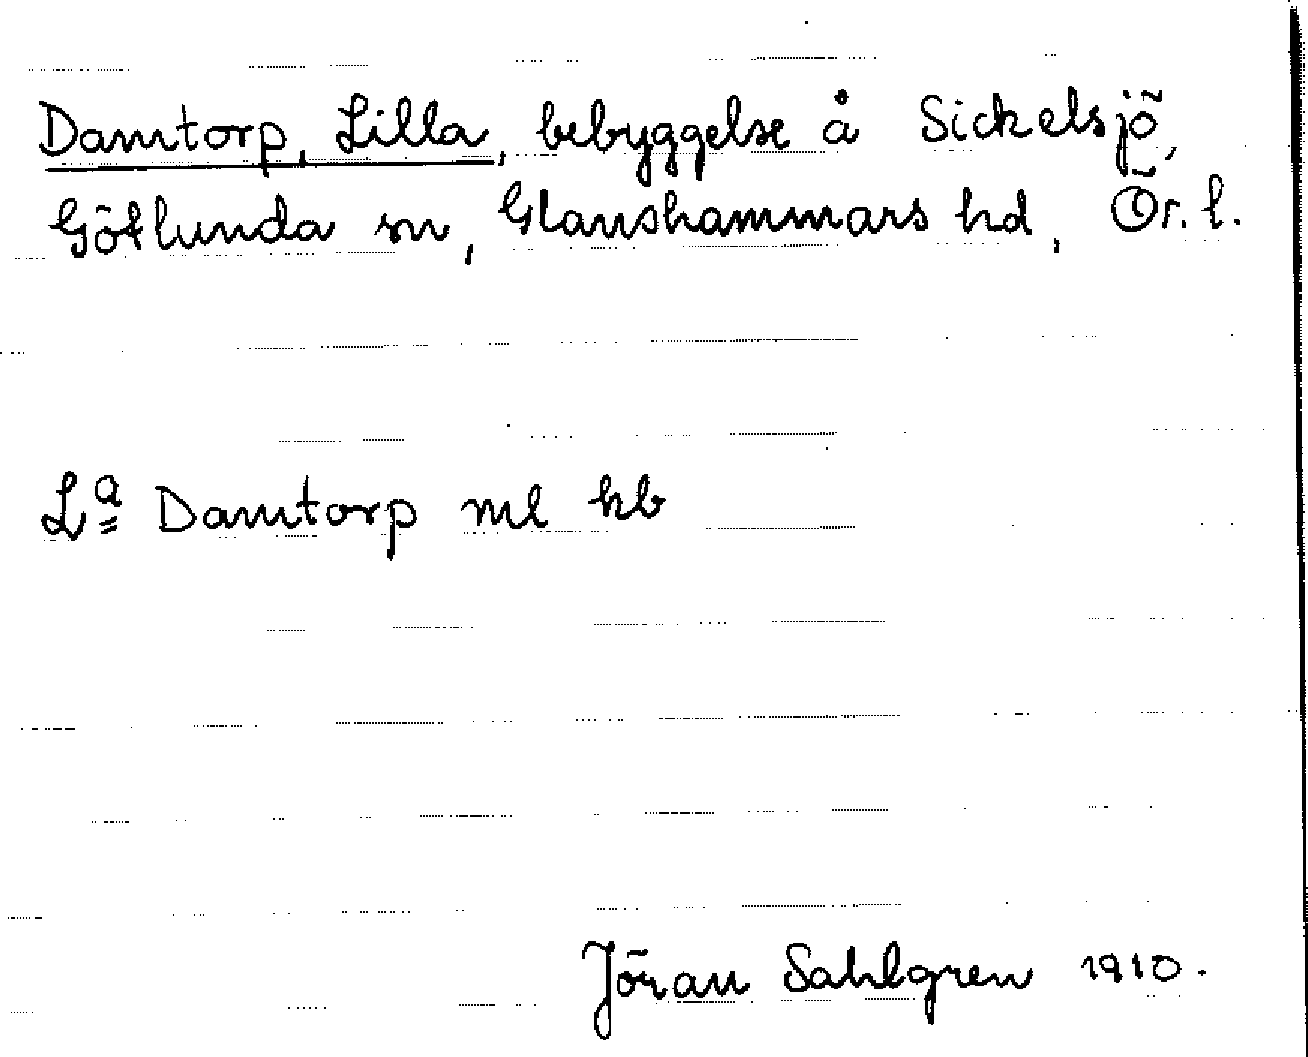 Damtorp, Lilla, bebyggelse å Sickelsjö,
Götlunda sn, Glanshammars hd, Ör. l.
Lª Damtorp ml kb
Jöran Sahlgren 1910.